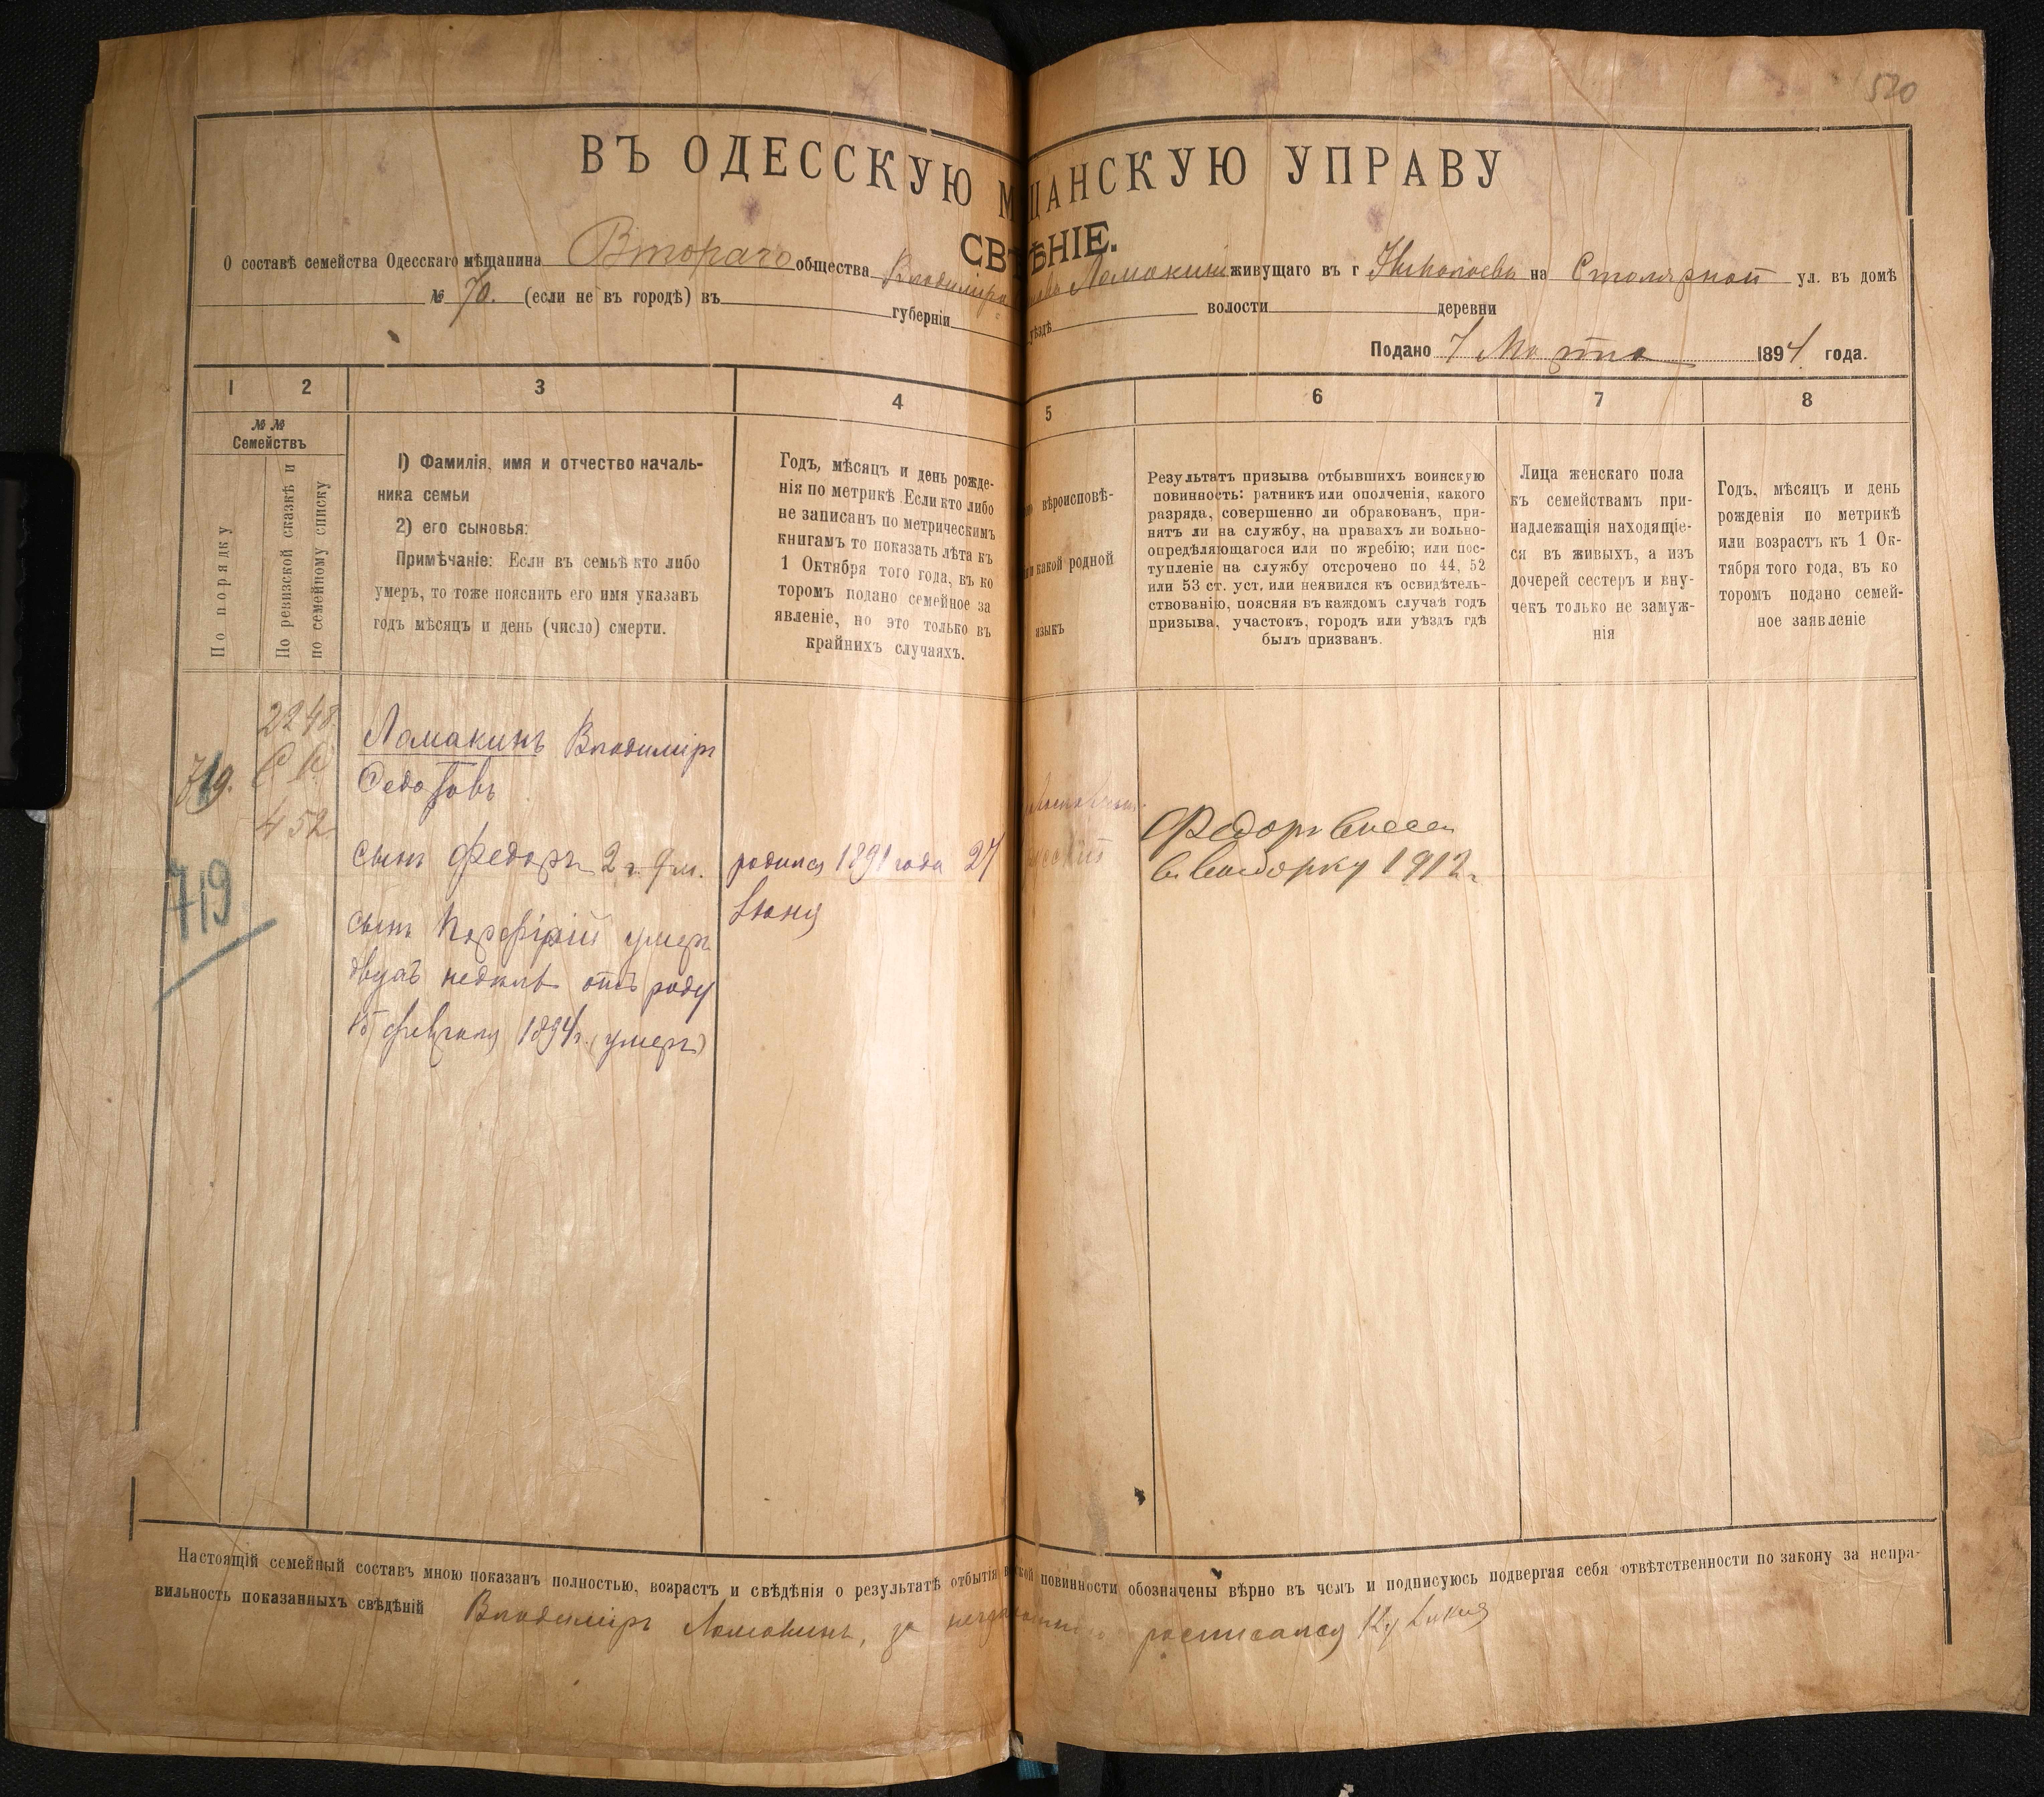 520
ВЪ ОДЕССКУЮ М ЩАНСКУЮ УПРАВУ
СВ ѢНІЕ.
О составѣ семейства Одесскаго мѣщанина Втораго общества Владимира Ломакина живущаго въ г Николаевѣ на Столярной ул. въ домѣ
№ 70. (если не въ городѣ) въ губерніи уѣздѣ волости деревни
Подано 7 Марта 1894 года.
1 2 3 4 5 6 7 8
№№
Семействъ
По порядку
По ревизской сказкѣ и
по семейному списку
1) Фамилія, имя и отчество началь-
ника семьи
2) его сыновья:
Примѣчаніе: Если въ семьѣ кто либо
умеръ, то тоже пояснить его имя указавъ
годъ мѣсяцъ и день (число) смерти.
Годъ, мѣсяцъ и день рожде-
нія по метрикѣ Если кто либо
не записанъ по метрическимъ
книгамъ то показать лѣта къ
1 Октября того года, въ ко
торомъ подано семейное за
явленіе, но это только въ
крайнихъ случаяхъ.
вѣроисповѣ-
какой родной
языкъ
Результатъ призыва отбывшихъ воинскую
повинность: ратникъ или ополченія, какого
разряда, совершенно ли обракованъ, при-
нятъ ли на службу, на правахъ ли вольно-
опредѣляющагося или по жребію; или пос-
тупленіе на службу отсрочено по 44, 52
или 53 ст. уст. или неявился къ освидѣтель-
ствованію, поясняя въ каждомъ случаѣ годъ
призыва, участокъ, городъ или уѣздъ гдѣ
былъ призванъ.
Лица женскаго пола
къ семействамъ при-
надлежащія находящіе-
ся въ живыхъ, а изъ
дочерей сестеръ и вну-
чекъ только не замуж-
нія
Годъ, мѣсяцъ и день
рожденія по метрикѣ
или возрастъ къ 1 Ок-
тября того года, въ ко
торомъ подано семей-
ное заявленіе
719.
2248
С П
452
719
Ломакинъ Владимиръ
Федотовъ
сынъ Федоръ 2 г. 9 м.
сынъ Порфирій умеръ
двухъ недѣль отъ роду
15 февраля 1894 г. (умеръ)
родился 1891 года 27
Іюня
русскій
Федоръ
1912 г.
Настоящій семейный составъ мною показанъ полностью, возрастъ и свѣдѣнія о результатѣ отбытія в ской повинности обозначены вѣрно въ чемъ и подписуюсь подвергая себя отвѣтственности по закону за непра-
вильность показанныхъ свѣдѣній Владимиръ Ломакинъ, за росписался